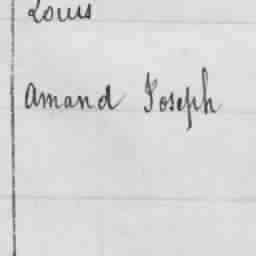 Louis
Amand Joseph